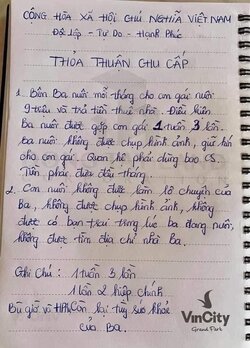 CỘNG HÒA XÃ HỘI CHỦ NGHĨA VIỆT NAM
Độc Lập - Tự Do - Hạnh Phúc
THỎA THUẬN CHU CẤP
1. Bên Ba nuôi mỗi tháng cho con gái nuôi
9 triệu và trả tiền thuê nhà. Điều kiện
Ba nuôi được gặp con gái 1 tuần 3 lần.
ba nuôi không được chụp hình ảnh, quê hón
cho con gái. Quan hệ phải dùng bao CS.
Tiền phải đưa đầu tháng.
2. Con nuôi không được làm lộ chuyện của
Ba, không được chụp hình ảnh, không
được có bạn trai trong lúc ba đang nuôi,
không được tìm địa chỉ nhà Ba.
Ghi Chú: 1 tuần 3 lần
1 lần 2 hiệp chính
Bù giờ và HP còn lại tùy sức khỏe
của Ba.
VinCity
Grand Park